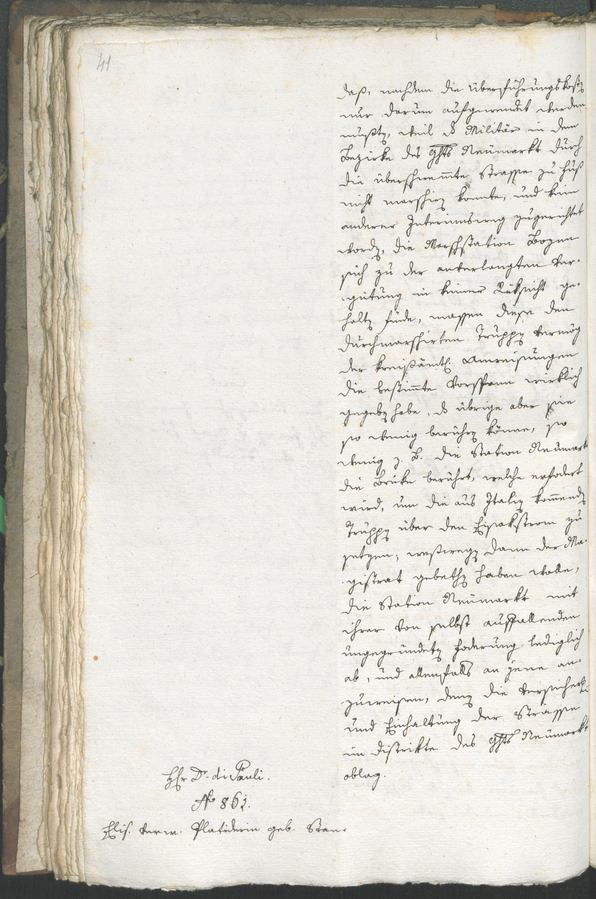 41
daß, nachdem die Überführungskösten
nur darum aufgewendet werden
mußten, weil das Militär in dem
Bezirke des Ghts Neumarkt durch
die überschwemmte Strasse zu Fuß
nicht marschiren konnte, und kein
anderer Interimsweg zugerichtet
worden, die Marschstation Bozen
sich zu der anverlangten Ver-
gütung in keiner Rüksicht ge-
halten finde, massen diese den
durchmarschirten Truppen vermög
der kreisämtl. Anweisungen
die bestimte Vorspann wirklich
gegeben habe, das übrige aber sie
so wenig berühren könne, so
wenig z. B. die Station Neumarkt
die Brüke berührt, welche erfodert
wird, um die aus Italien komenden
Truppen über den Eisakstrom zu
setzen; weßwegen dann der Ma-
gistrat gebethen haben wolle,
die Station Neumarkt mit
ihrer von selbst auffallenden
ungegründeten Foderung lediglich
ab, und allenfalls an jene an-
zuweisen, denen die
und Einhaltung der Strasse
im Distrikte des Ghts Neumarkt
oblag.
Hr Dr. di Pauli.
No 861.
Elis. verw. geb. Stan-